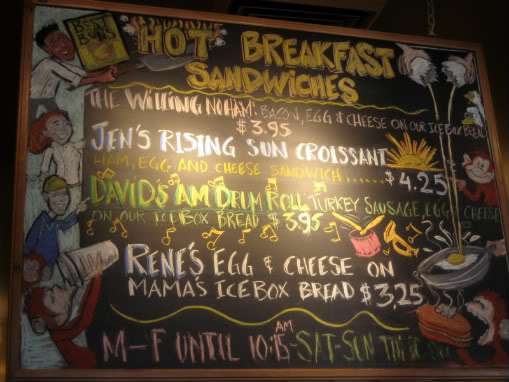 BEST
BUNS
HOT BREAKFAST
SANDWICHES
THE WILLINGNOHAM: BACON, EGG & CHEESE ON OUR ICEBOX BREAD
$3.95
JEN'S RISING SUN CROISSANT
HAM, EGG AND CHEESE SANDWICH......$4.25
DAVID'S AM DRUM ROLL: TURKEY SAUSAGE, EGG & CHEESE
ON OUR ICE BOX BREAD $3.95
RENE'S EGG & CHEESE ON
MAMA'S ICEBOX BREAD $3.25
M-F UNTIL 10:15 AM SAT-SUN